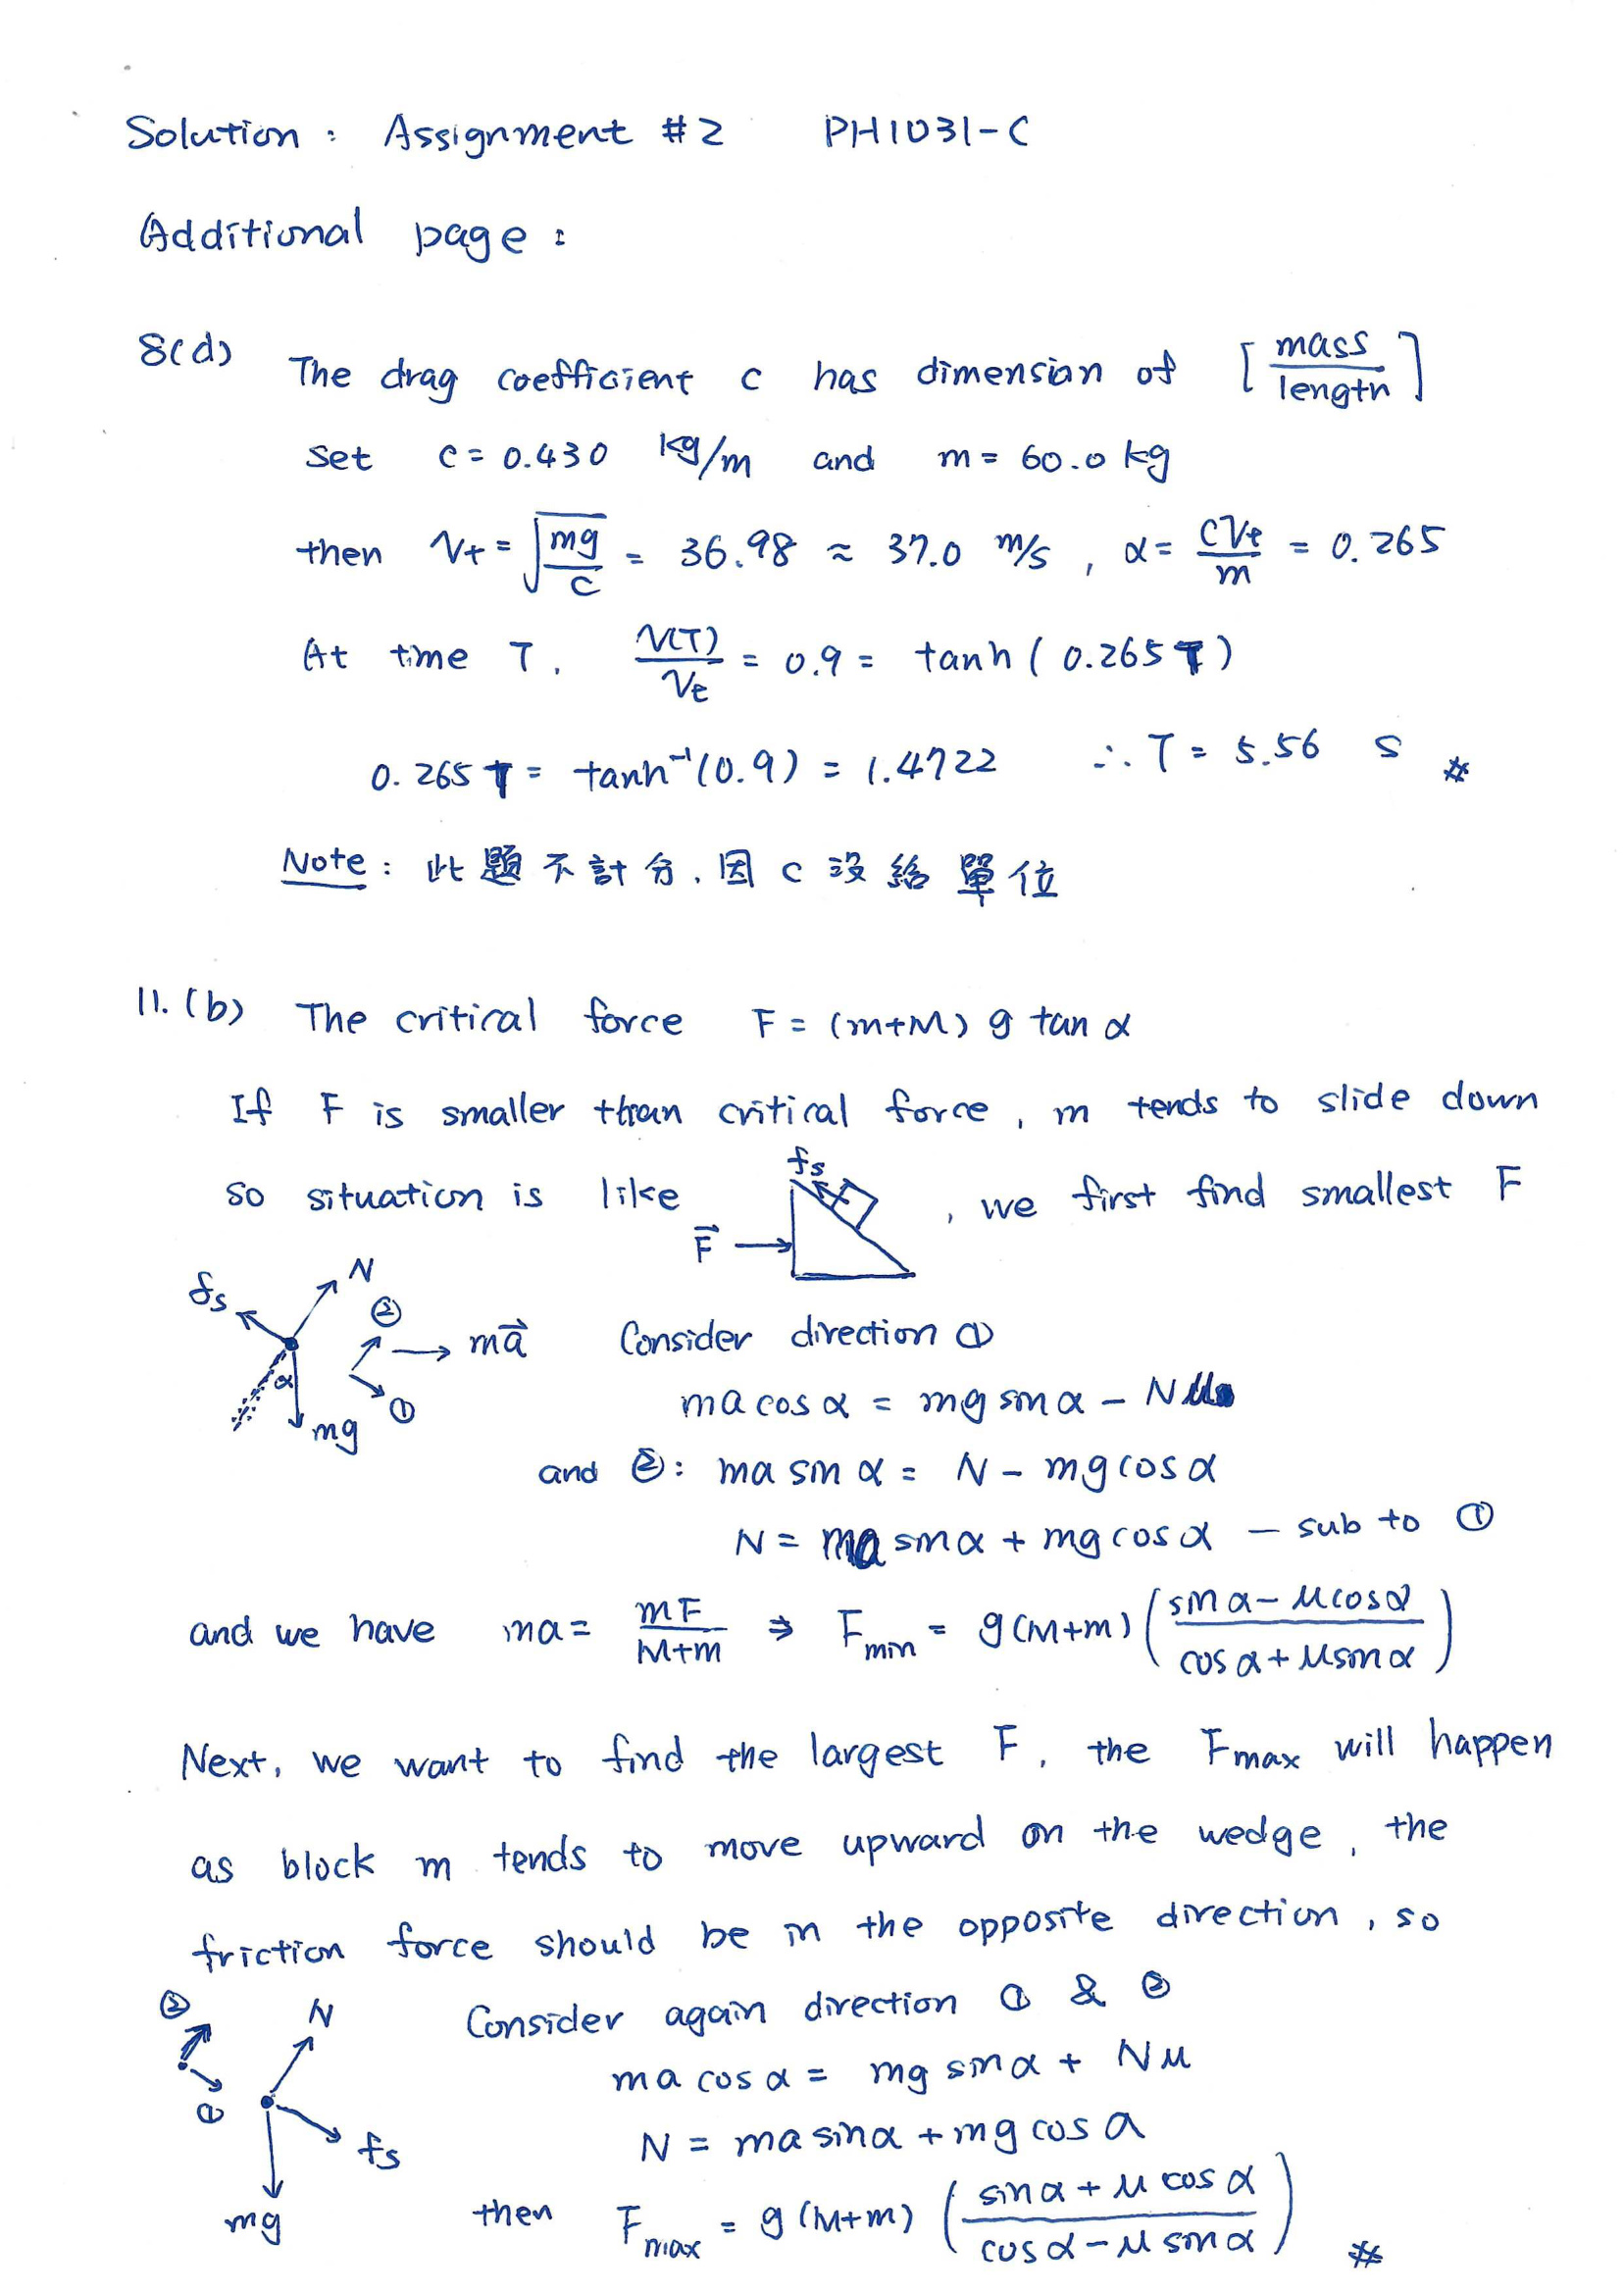 Solution : Assignment #2 PH1031-C
Additional page :
8(d) The drag coefficient c has dimension of [mass/length]
set c = 0.430 kg/m and m = 60.0 kg
then Vt = √(mg/c) = 36.98 ≈ 37.0 m/s , α = cVt/m = 0.265
At time T. V(T)/Vt = 0.9 = tanh ( 0.265 T )
0.265 T = tanh⁻¹(0.9) = 1.4722 ∴ T = 5.56 s #
Note : 此題不計分.因 c 沒給單位
11. (b) The critical force F = (m+M) g tan α
If F is smaller than critical force , m tends to slide down
so situation is like , we first find smallest F
fs
F⃗
fs N ② ma⃗ ① α mg
Consider direction ①
ma cos α = mg sin α − Nμ
and ② : ma sin α = N − mg cos α
N = ma sin α + mg cos α — sub to ①
and we have ma = mF/(M+m) ⇒ Fmin = g(M+m) ( (sin α − μ cos α)/(cos α + μ sin α) )
Next, we want to find the largest F , the Fmax will happen
as block m tends to move upward on the wedge , the
friction force should be in the opposite direction , so
② ① N fs mg
Consider again direction ① & ②
ma cos α = mg sin α + Nμ
N = ma sin α + mg cos α
then Fmax = g (M+m) ( (sin α + μ cos α)/(cos α − μ sin α) ) #